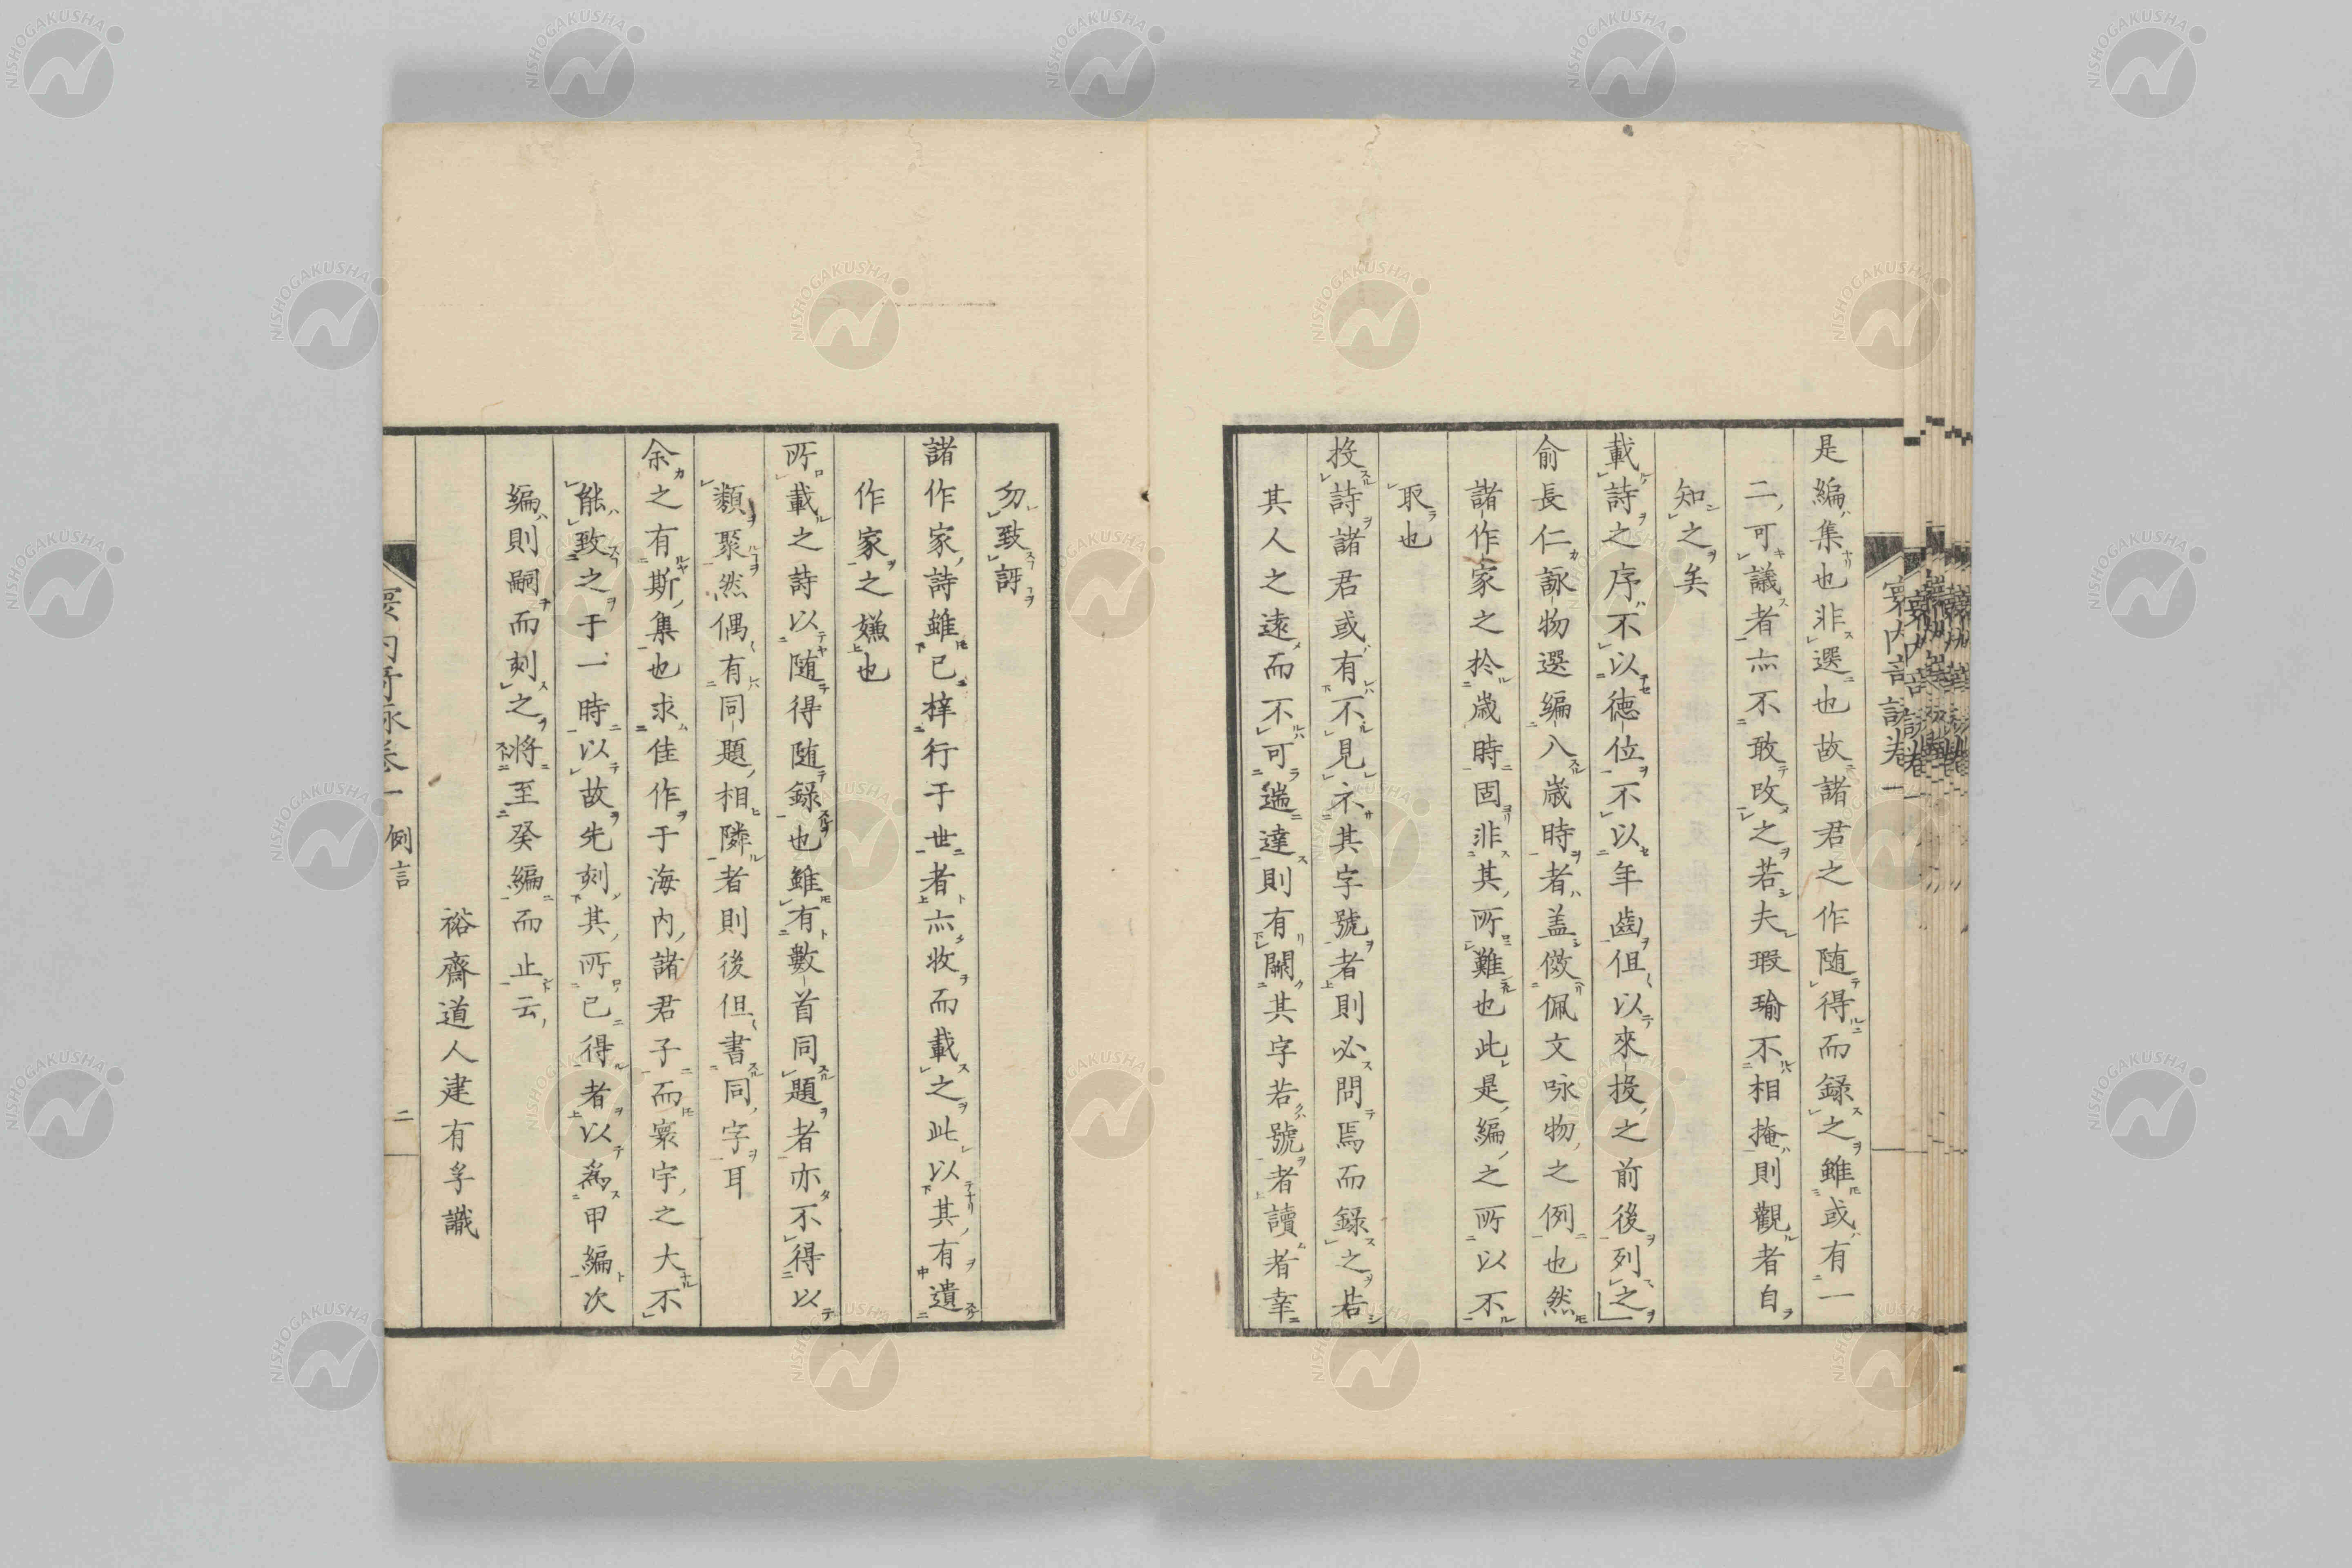 是編集也非選也故諸君之作随得而録之雖或有一
二可議者亦不敢改之若夫瑕瑜不相掩則觀者自
知之矣
載詩之序不以德位不以年齒但以來投之前後列之
俞長仁詠物選編八歳時者盖倣佩文咏物之例也然
諸作家之於歳時固非其所難也此是編之所以不
取也
投詩諸君或有不見示其字號者則必問焉而録之若
其人之遠而不可遄達則有闕其字若號者讀者幸
勿致訝
諸作家詩雖已梓行于世者亦收而載之此以其有遺
作家之嫌也
所載之詩以随得随録也雖有數首同題者亦不得以
類聚然偶有同題相隣者則後但書同字耳
余之有斯集也求佳作于海内諸君子而寰宇之大不
能致之于一時以故先刻其所已得者以爲甲編次
編則嗣而刻之將至癸編而止云
裕齋道人建有孚識
例言
二
NISHOGAKUSHA